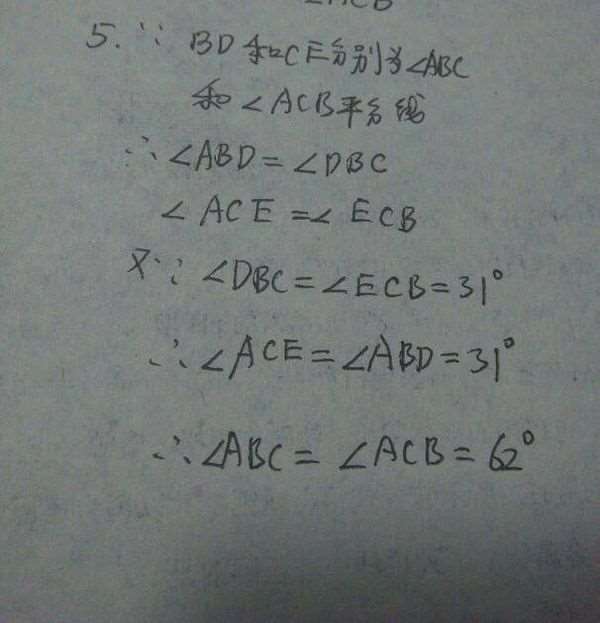 ∠ACB
5. ∵ BD和CE分别为∠ABC
和∠ACB平分线
∴ ∠ABD=∠DBC
∠ACE=∠ECB
又∵ ∠DBC=∠ECB=31°
∴ ∠ACE=∠ABD=31°
∴ ∠ABC=∠ACB=62°